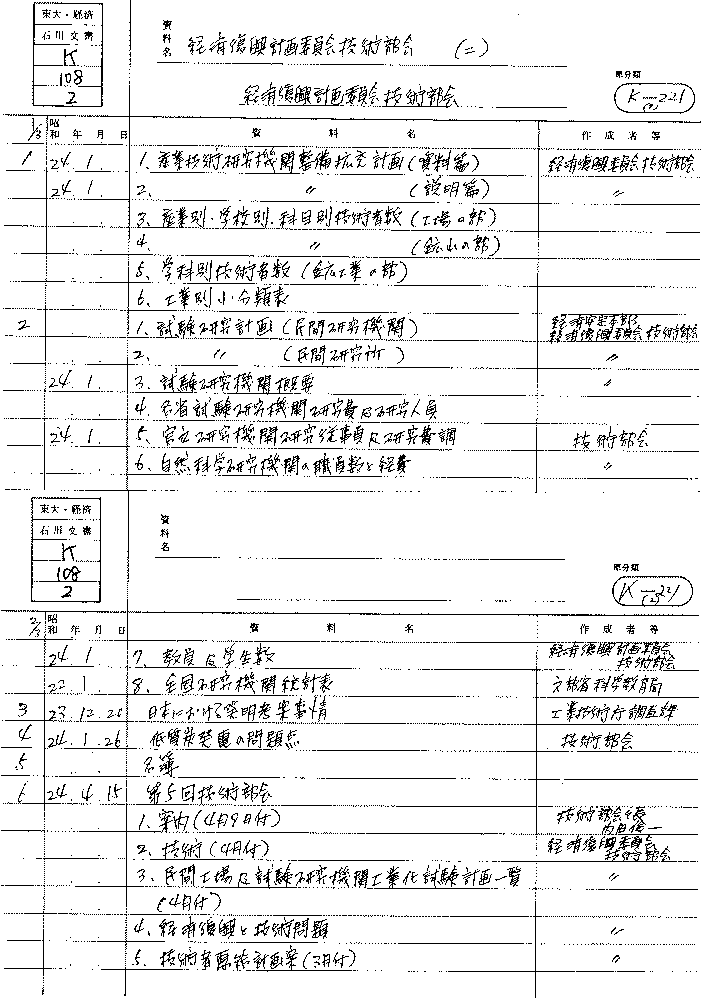 東大・経済
石川文書
K
108
2
資料名 経済復興計画委員会技術部会 (二)
経済復興計画委員会技術部会
原分類
K-221
(2)
1/3 昭和 年 月 日 資 料 名 作成者等
1 24. 1. 1. 産業技術研究機関整備拡充計画(資料篇) 経済復興委員会技術部会
24. 1. 2. 〃 (説明篇) 〃
3. 産業別・学校別・科目別技術者数(工場の部)
4. 〃 (鉱山の部)
5. 学科別技術者数(鉱工業の部)
6. 工業別小分類表
2 1. 試験研究計画(民間研究機関) 経済安定本部 経済復興委員会技術部会
2. 〃 (民間研究所) 〃
24. 1. 3. 試験研究機関概要 〃
4. 各省試験研究機関研究費及研究人員
24. 1. 5. 官立研究機関研究従事員及研究費調 技術部会
6. 自然科学研究機関の職員数と経費 〃
東大・経済
石川文書
K
108
2
資料名
原分類
K-221
(2)
2/3 昭和 年 月 日 資 料 名 作成者等
24. 1 7. 教員及学生数 経済復興計画委員会技術部会
22. 1. 8. 全国研究機関統計表 文部省科学教育局
3 23. 12. 20 日本における発明考案事情 工業技術庁調査課
4 24. 1. 26 低質炭発電の問題点 技術部会
5 名簿
6 24. 4. 15 第5回技術部会
1. 案内(4月9日付) 技術部会長
2. 技術(4月付) 経済復興委員会技術部会
3. 民間工場及試験研究機関工業化試験計画一覧 〃
(4月付)
4. 経済復興と技術問題 〃
5. 技術者養成計画案(3月付) 〃